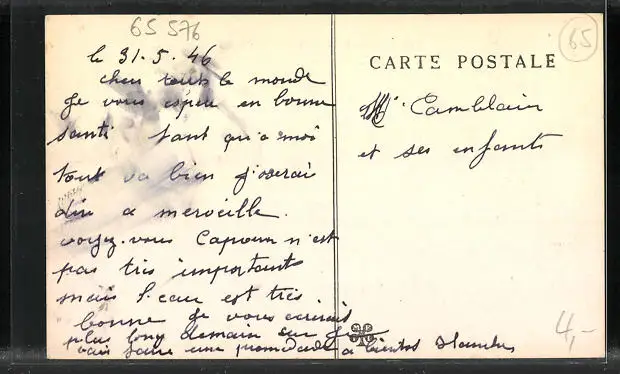 65 576
65
le 31-5-46
cher touts le monde
Je vous espère en bonne
santé tant qu'a moi
tout va bien j'oserai
dire a merveille.
voyez-vous Capvern n'est
pas très important
mais l'eau est très
bonne Je vous écrirais
plus long demain car je
vais faire une promenade a bientot
CARTE POSTALE
Camblain
et ses enfants
4,-